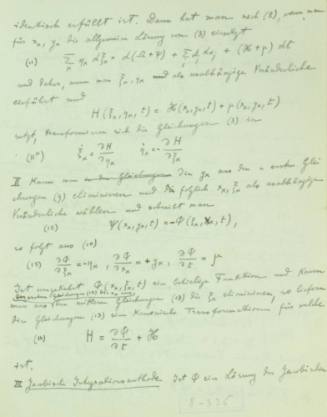 identisch erfüllt ist. Dann hat man nach (8), wenn man
für x_α, y_α die allgemeine Lösung von (3) einsetzt
(11) Σ η_α dξ_α = d(Ω+Ψ) + Σ dα_j + (ℋ+μ) dt
und daher, wenn man ξ_α, η_α als unabhängige Veränderliche
einführt und
H(ξ_α, η_α, t) = ℋ(x_α, y_α, t) + μ(x_α, y_α, t)
setzt, transformieren sich die Gleichungen (3) in
(11*) ξ̇_α = ∂H/∂η_α η̇_α = -∂H/∂ξ_α
II Kann man die y_α aus den n ersten Glei
chungen (9) eliminieren und folglich x_α, ξ_α als unabhängige
Veränderliche wählen und schreibt man
(12) Ψ(x_α, y_α, t) = -Φ(ξ_α, x_α, t),
so folgt aus (10)
(13) ∂Φ/∂ξ_α = -η_α, ∂Φ/∂x_α = +y_α, ∂Φ/∂t = μ
Ist umgekehrt Φ(x_α, ξ_α, t) eine beliebige Funktion und kann
man aus den mittleren Gleichungen (13) die ξ_α eliminieren, so liefern
die Gleichungen (13) eine kanonische Transformation für welche
(14) H = ∂Φ/∂t + ℋ
ist.
III Jacobische Integrationsmethode Ist Φ eine Lösung der Jacobischen
8-326